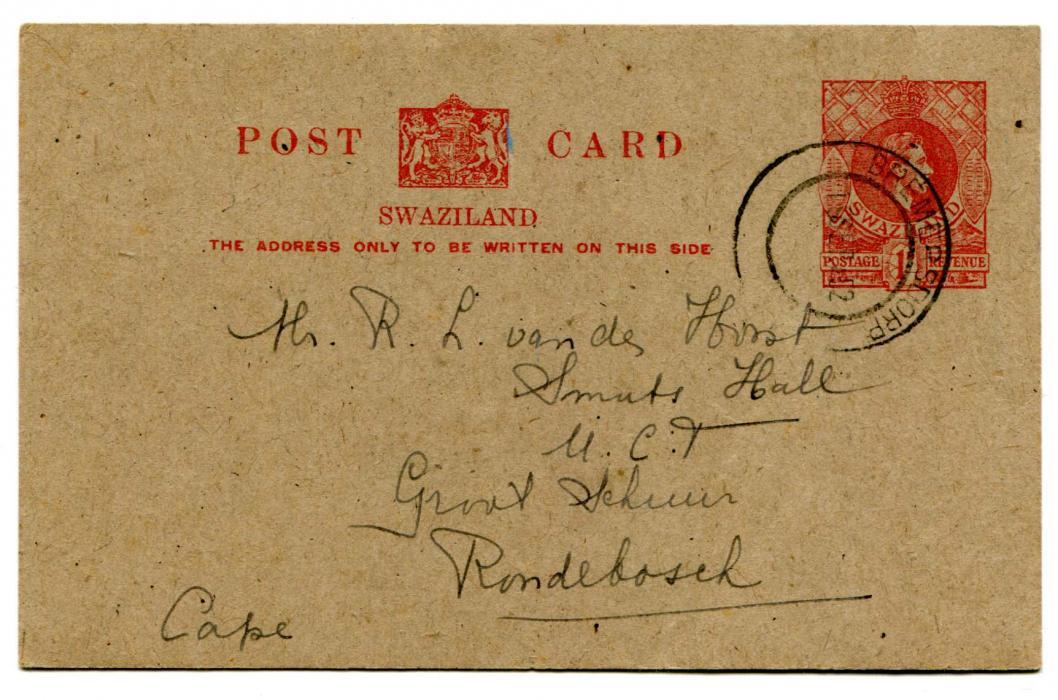 POST CARD
SWAZILAND
THE ADDRESS ONLY TO BE WRITTEN ON THIS SIDE
SWAZILAND
POSTAGE 1d REVENUE
BREMERSDORP
Mr. R. L. van der Horst
Smuts Hall
U.C.T
Groot Schuur
Rondebosch
Cape